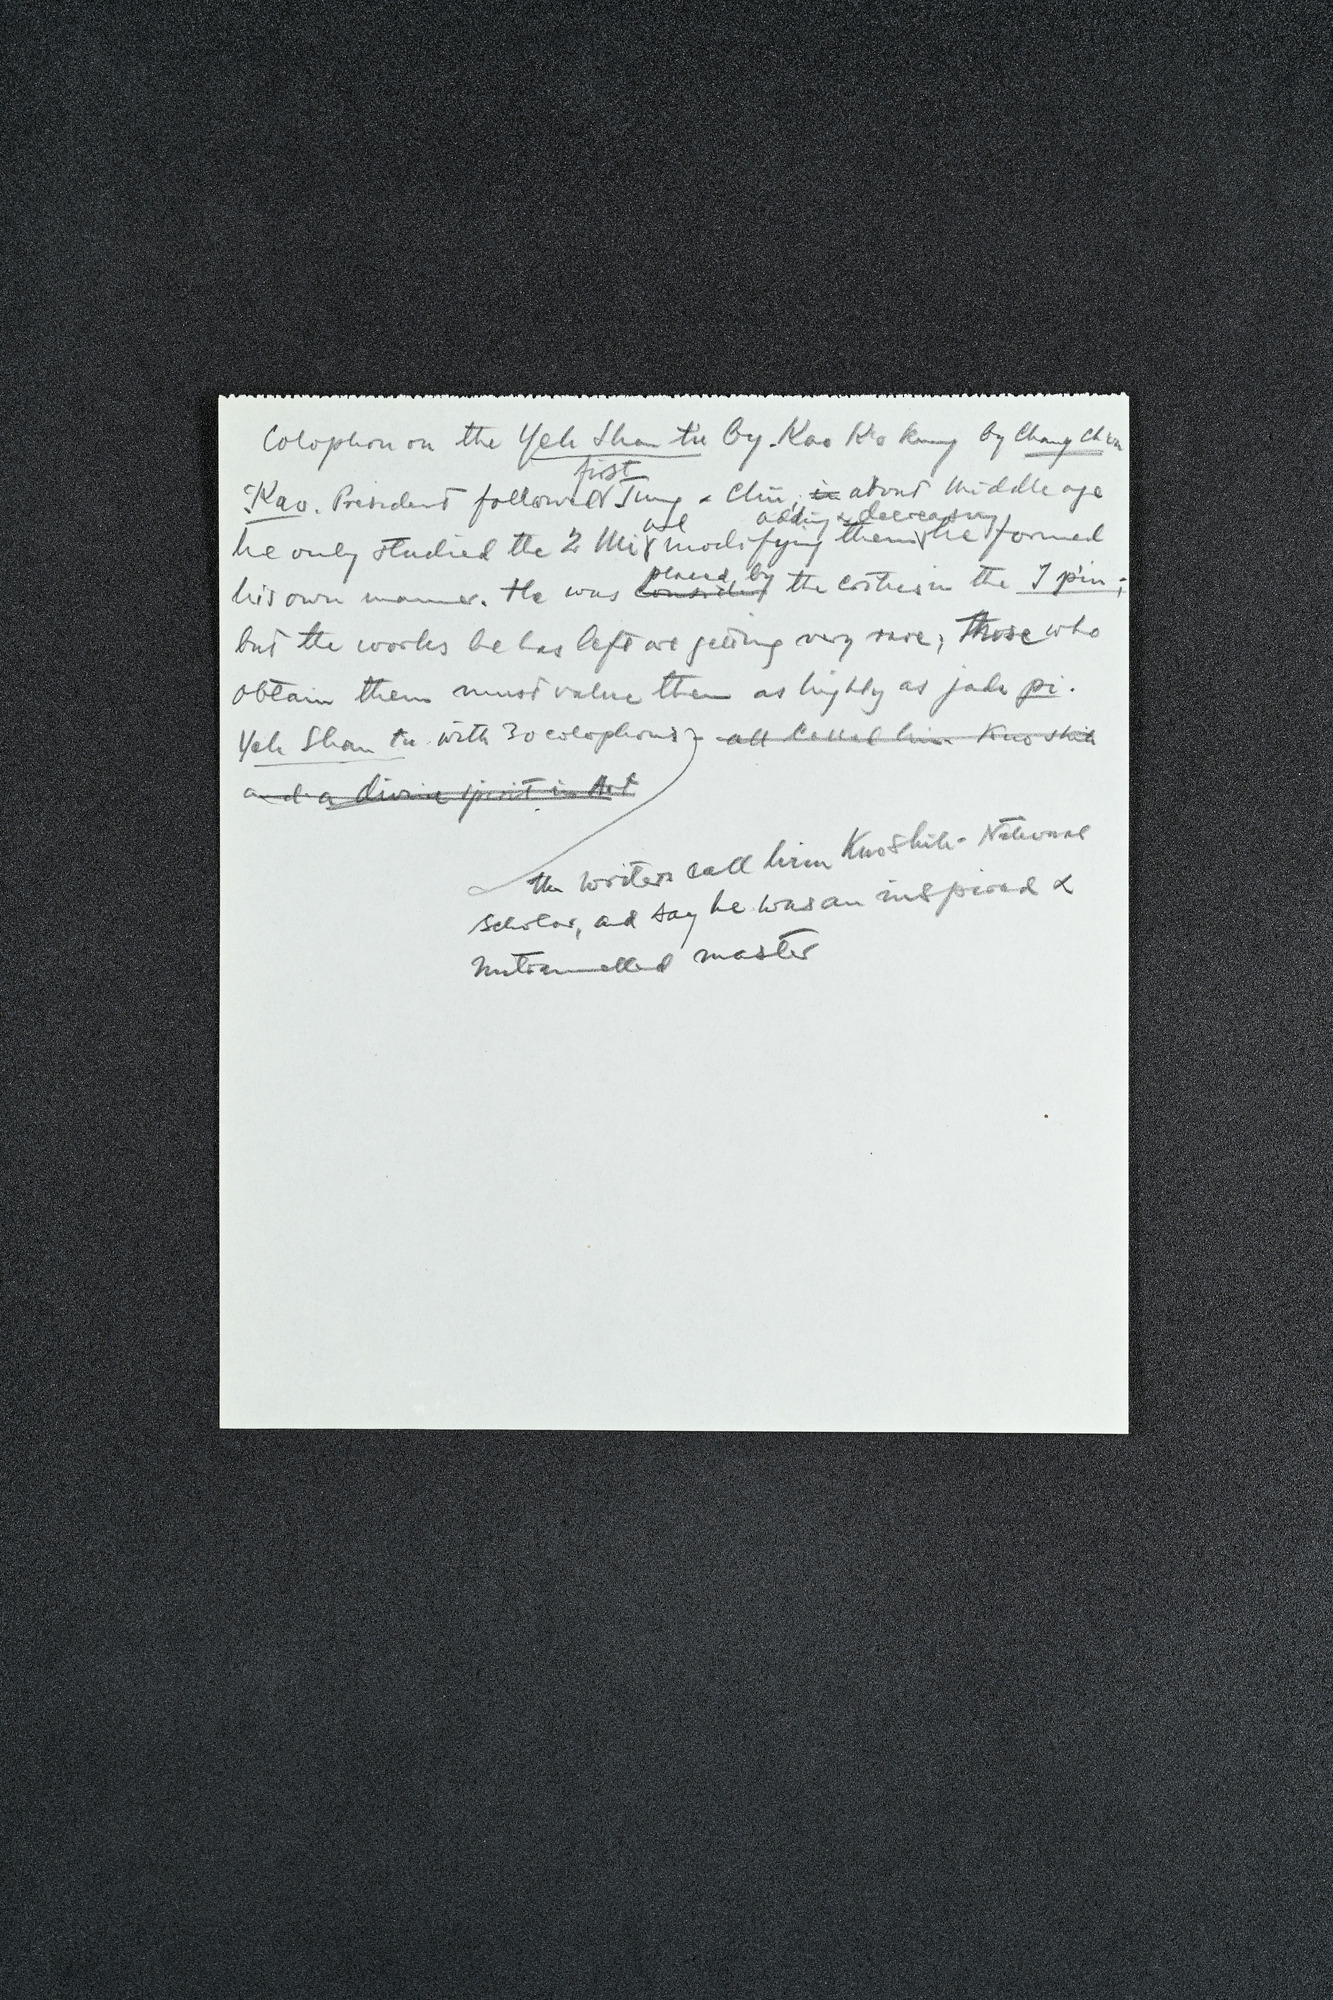 Colophon on the Yeh Shan tu by Kao K'o kung by Chang Ch'un
Kao. President followed first Tung & Chü, in about middle age
he only studied the 2 Mi and modifying them, adding & decreasing he formed
his own manner. He was considered placed by the critics in the I p'in;
but the works he has left are getting very rare; those who
obtain them must value them as highly as jade pi.
Yeh Shan tu with 30 colophons, all called him Kuo shih
and a divine spirit in Art
the writers call him Kuo Shih - National
scholar, and say he was an inspired &
untramelled master